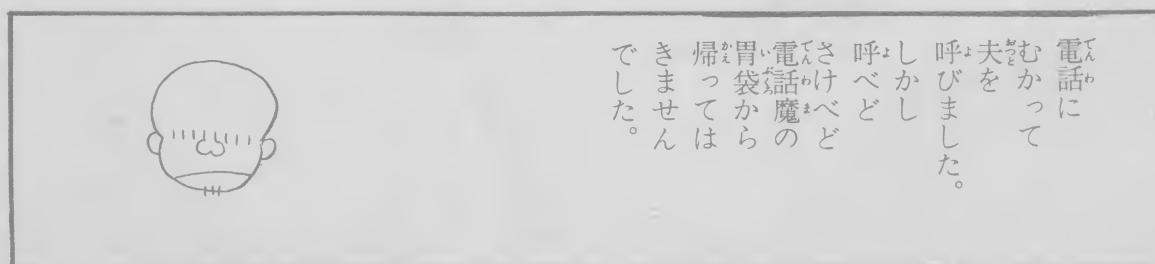 電話に
むかって
夫を
呼びました。
しかし
呼べど
さけべど
電話魔の
胃袋から
帰っては
きません
でした。